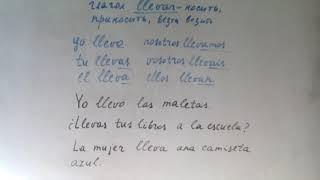 глагол llevar - носить,
приносить, везти возить
yo llevo nosotros llevamos
tu llevas vosotros lleváis
el lleva ellos llevan
Yo llevo las maletas.
¿Llevas tus libros a la escuela?
La mujer lleva una camiseta
azul.